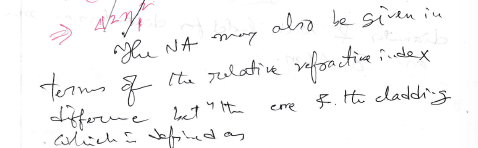 ⇒ Δ2n₁²
The NA may also be given in
terms of the relative refractive index
difference betⁿ the core & the cladding
which is defined as